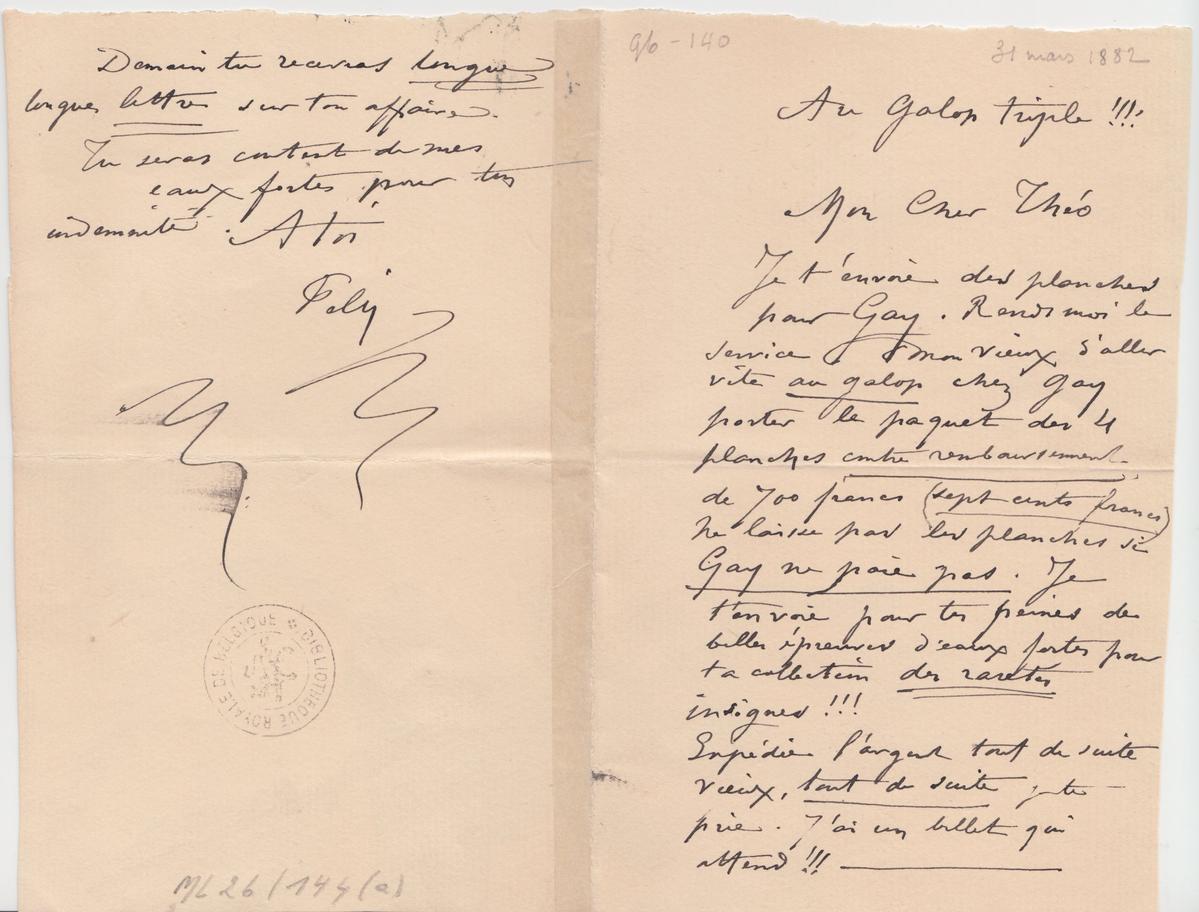 96-140
31 mars 1882
Au Galop triple !!!
Mon Cher Théo
Je t'envoie des planches
pour Gay. Rends moi le
service mon vieux d'aller
vite au galop chez Gay
porter le paquet des 4
planches contre remboursement
de 700 francs (sept cents francs)
Ne laisse pas les planches si
Gay ne paie pas. Je
t'envoie pour tes peines de
belles épreuves d'eaux fortes pour
ta collection des raretés
insignes !!!
Expédie l'argent tout de suite
vieux, tout de suite je te
prie. J'ai un billet qui
attend !!!
Demain tu recevras longue
longues lettre sur ton affaire.
Tu seras content de mes
eaux fortes pour ton
indemnité. A toi
Fély
BIBLIOTHEQUE ROYALE DE BELGIQUE
ML 26/144 (a)